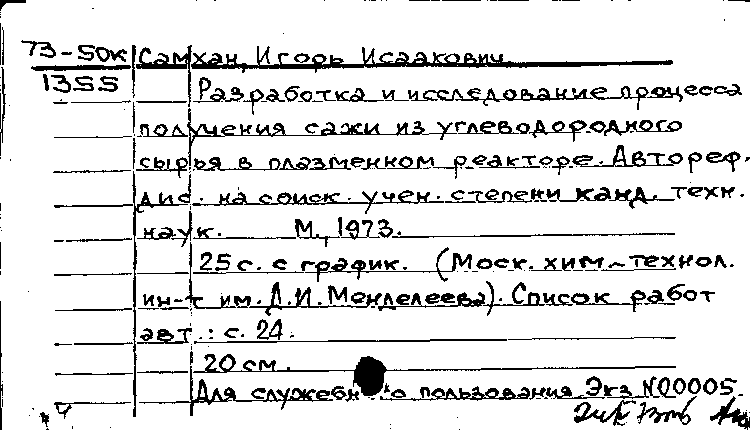 73-50к Самхан, Игорь Исаакович.
1355 Разработка и исследование процесса
получения сажи из углеводородного
сырья в плазменном реакторе. Автореф.
дис. на соиск. учен. степени канд. техн.
наук. М., 1973.
25 с. с график. (Моск. хим-технол.
ин-т им. Д.И. Менделеева). Список работ
авт.: с. 24.
20 см.
Для служебного пользования. Экз N00005.